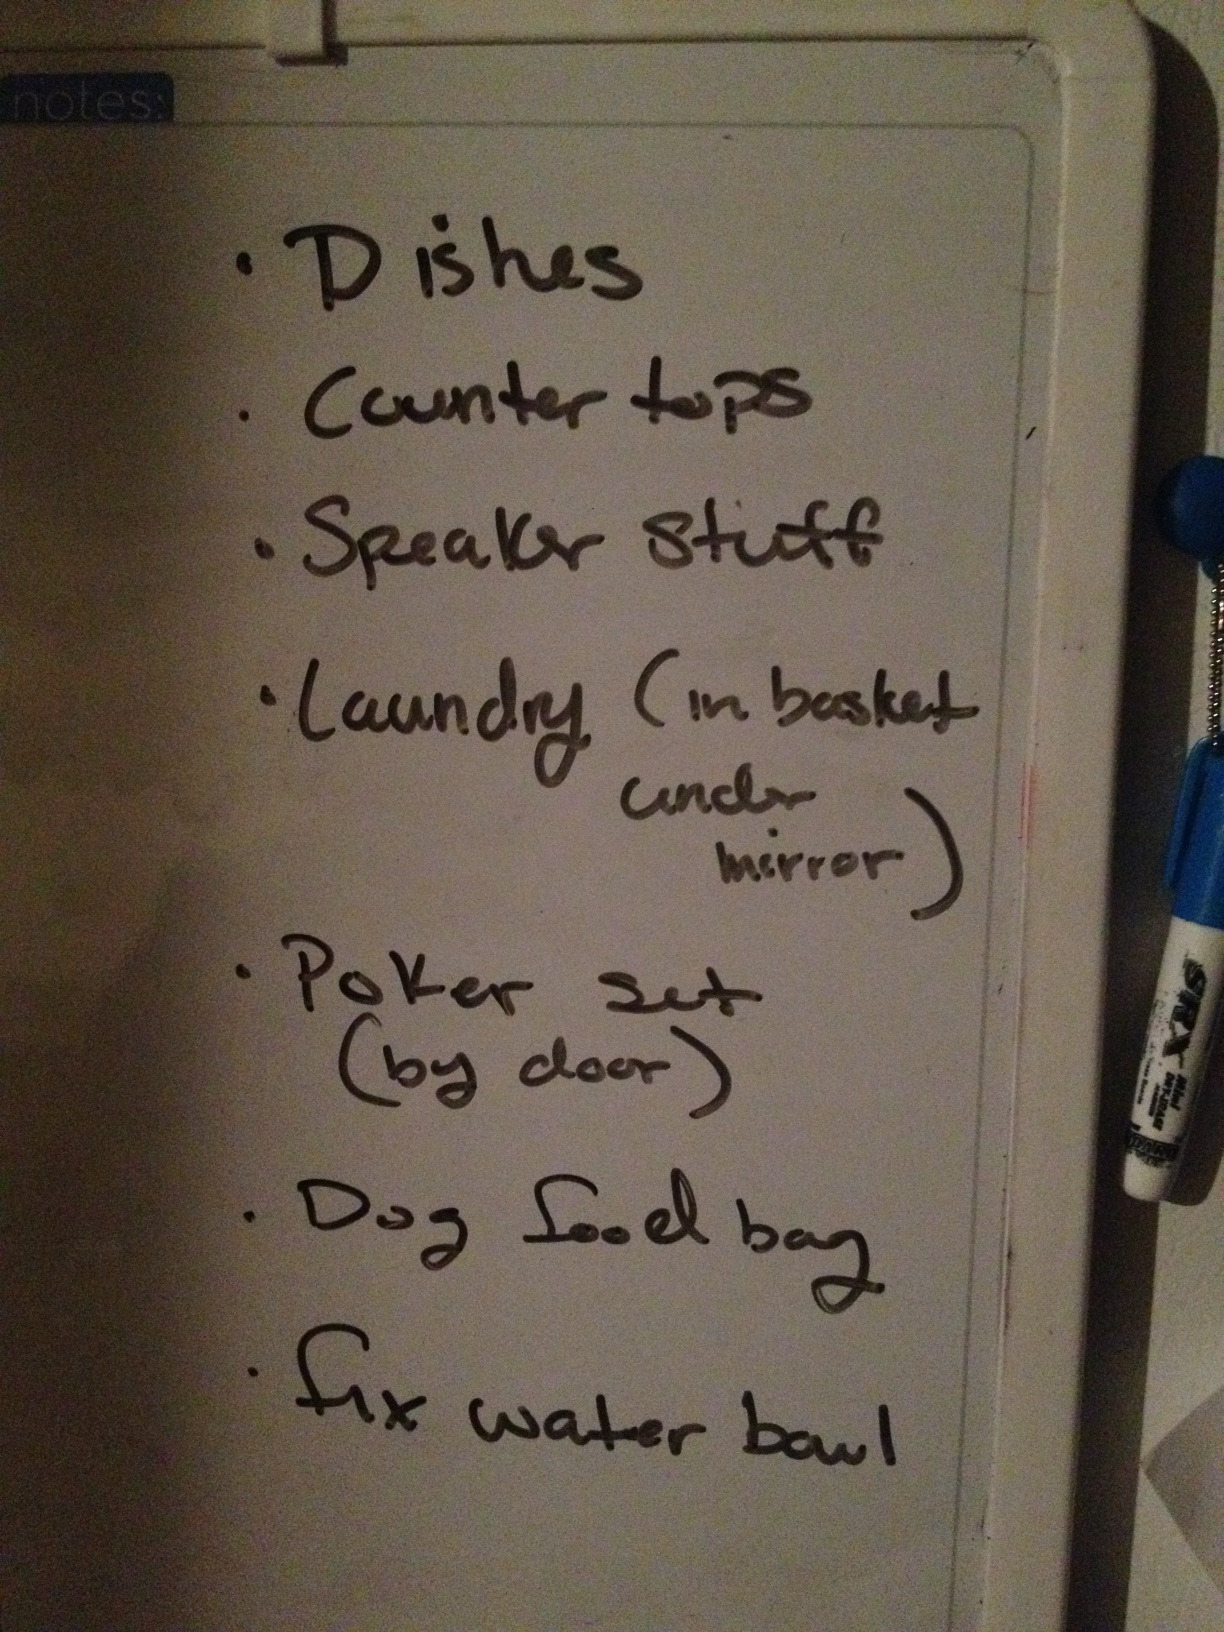 notes:
• Dishes
• Counter tops
• Speaker stuff
• Laundry (in basket
under
mirror)
• Poker set
(by door)
• Dog food bag
• fix water bowl
SRX
Mini
DRY-ERASE